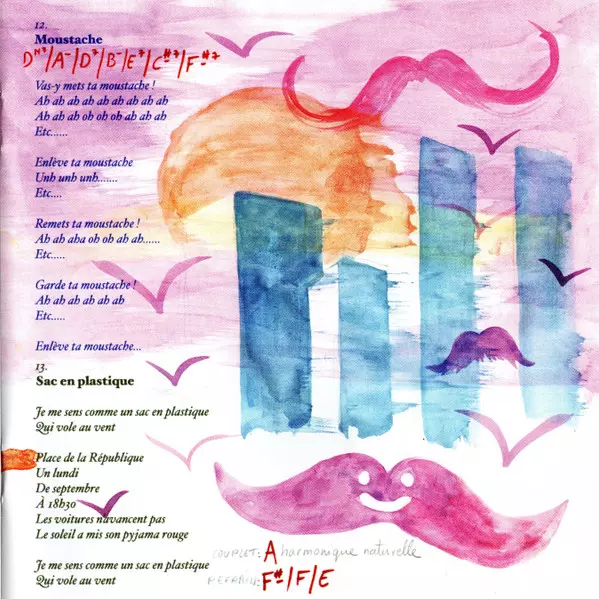 12.
Moustache
D#7/A-/D7/B-/E7/C#7/F#7
Vas-y mets ta moustache !
Ah ah ah ah ah ah ah ah ah
Ah ah ah oh oh oh ah ah ah
Etc......
Enlève ta moustache
Unh unh unh.......
Etc....
Remets ta moustache !
Ah ah aha oh oh ah ah......
Etc.....
Garde ta moustache !
Ah ah ah ah ah ah
Etc.....
Enlève ta moustache...
13.
Sac en plastique
Je me sens comme un sac en plastique
Qui vole au vent
Place de la République
Un lundi
De septembre
À 18h30
Les voitures n'avancent pas
Le soleil a mis son pyjama rouge
COUPLET: A harmonique naturelle
Je me sens comme un sac en plastique
Qui vole au vent
REFRAIN: F#/F/E